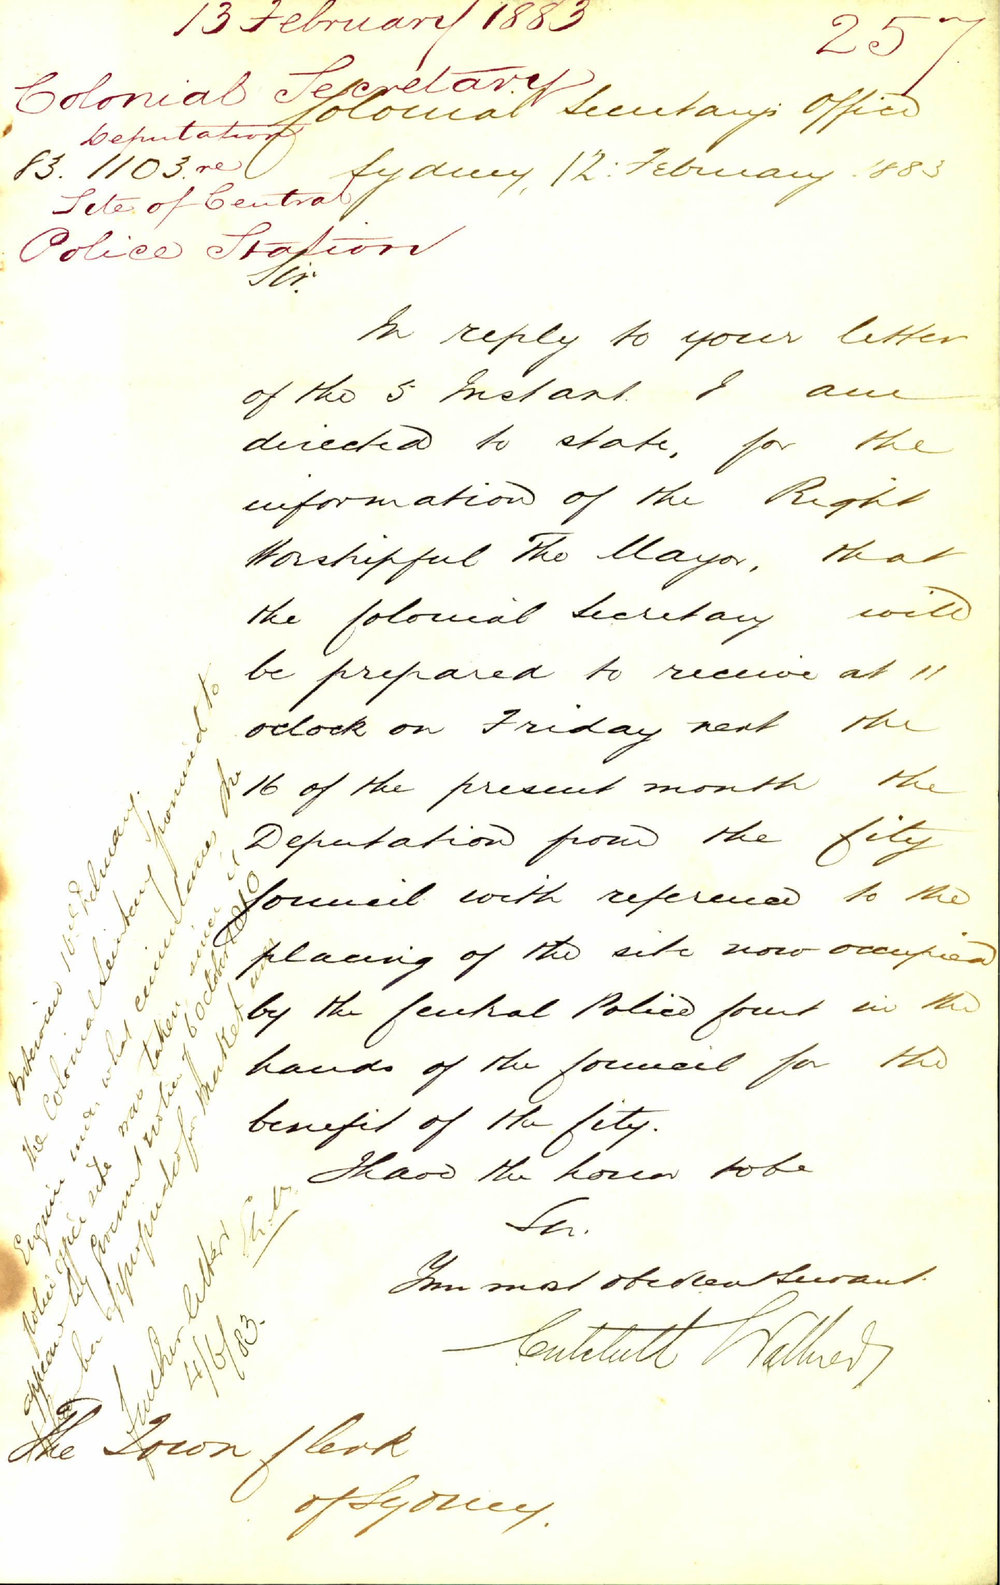 13 February 1883
257
Colonial Secretary
Deputation
83. 1103. re
Site of Central
Police Station
Colonial Secretary's Office
Sydney, 12: February 1883
Sir.
In reply to your letter
of the 5 Instant. I am
directed to state, for the
information of the Right
Worshipful The Mayor, that
the Colonial Secretary will
be prepared to receive at 11
oclock on Friday next the
16 of the present month the
Deputation from the City
Council with reference to the
placing of the site now occupied
by the Central Police Court in the
hands of the Council for the
benefit of the City.
I have the honor to be
Sir.
Your most obedient Servant.
Critchett Walker
The Town Clerk
of Sydney.
Interview 16th February.
the Colonial Secretary promised to
Enquire under what circumstances the
Police Office site was taken since it
appears by Government notice of 6 October 1810
to be appropriated for Market
Further letter
4/6/83.